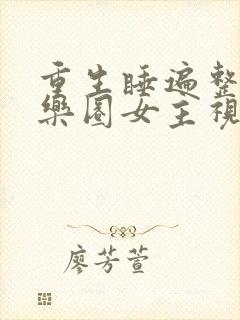 重生睡遍整
樂園女主視
廖芳萱